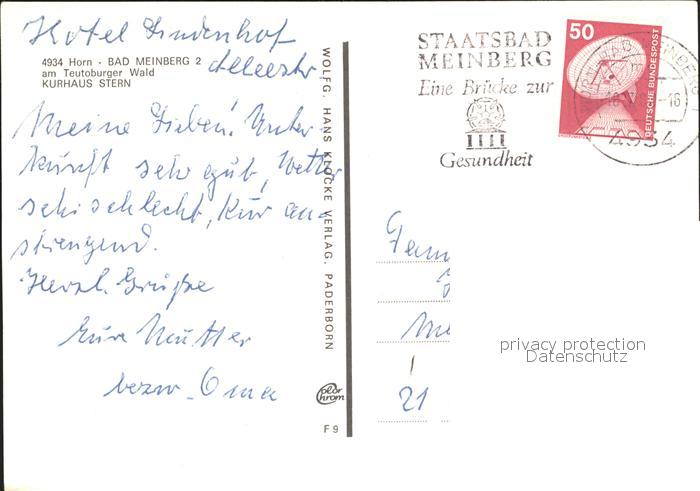 Hotel Lindenhof
Alleestr.
4934 Horn - BAD MEINBERG 2
am Teutoburger Wald
KURHAUS STERN
Meine Lieben! Unter-
kunft sehr gut, Wetter
sehr schlecht, Kur an-
strengend.
Herzl. Grüße
Eure Mutter
bezw. Oma
WOLFG. HANS KLOCKE VERLAG, PADERBORN
color
chrom
F 9
STAATSBAD
MEINBERG
Eine Brücke zur
Gesundheit
50
DEUTSCHE BUNDESPOST
4934
Fam
21
privacy protection
Datenschutz